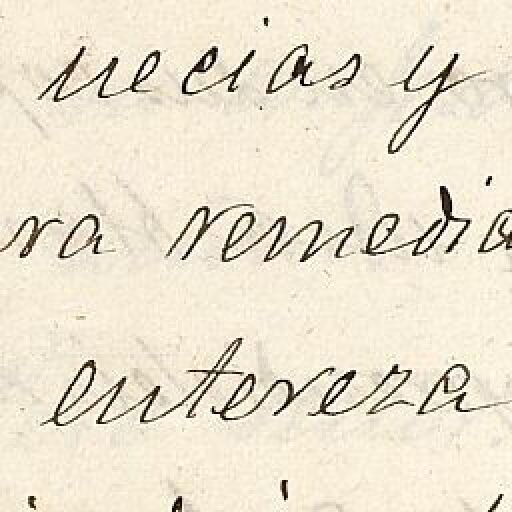 necias y
ra remedia
entereza